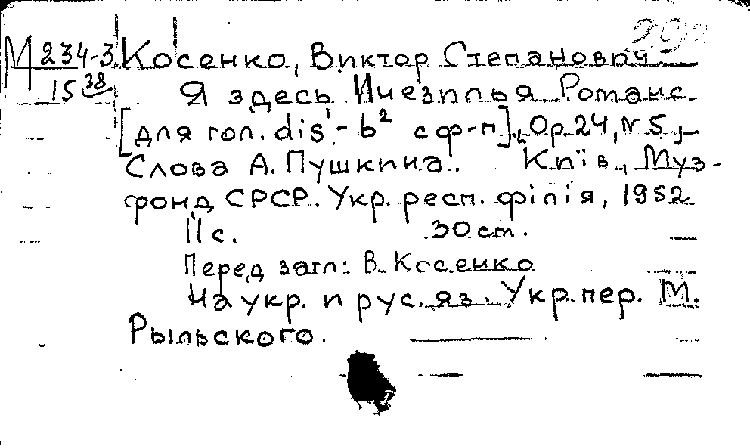 М 234-3 Косенко, Виктор Степанович
15 38
Я здесь Инезилья Романс
[для гол. dis¹-b² с ф-п]., Op. 24, N 5,
Слова А. Пушкина. Київ, Муз-
фонд СРСР. Укр. респ. філія, 1952
11 с. 30 cm.
Перед загл: В. Косенко
На укр. и рус. яз. Укр. пер. М.
Рыльского.